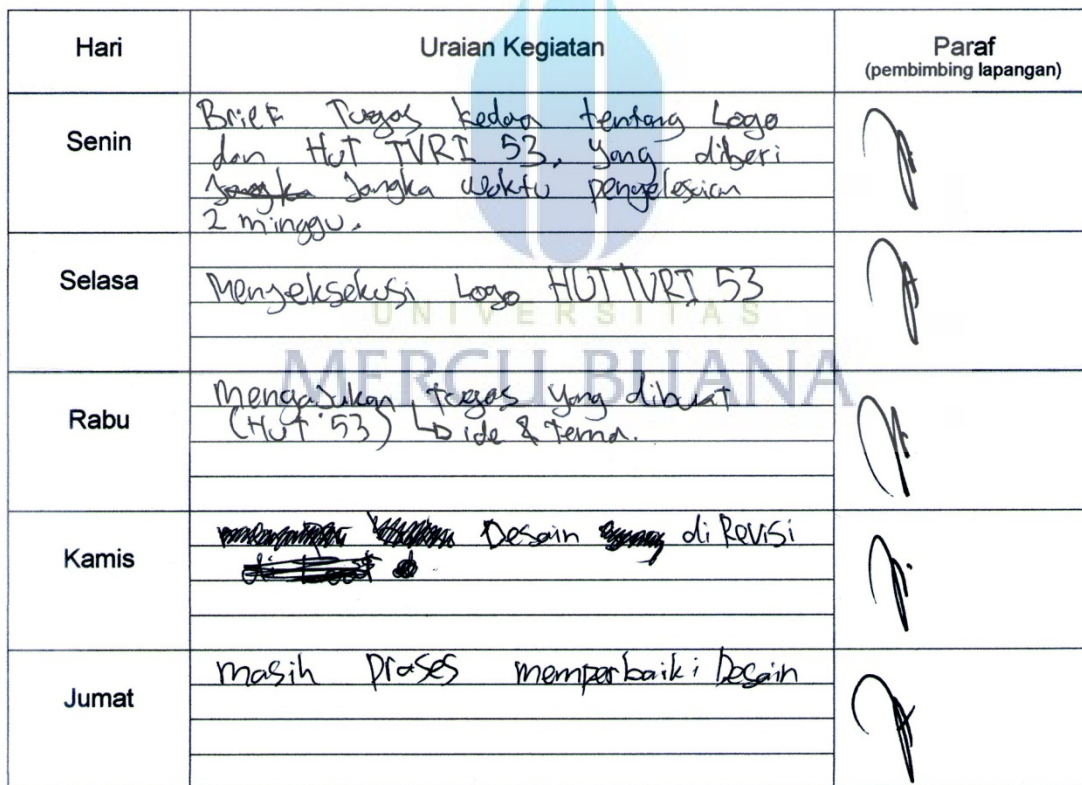 Hari Uraian Kegiatan Paraf
(pembimbing lapangan)
Senin
Brief Tugas kedua tentang Logo
dan HUT TVRI 53, yang diberi
Jangka waktu penyelesian
2 minggu.
Selasa
Mengeksekusi Logo HUT TVRI 53
UNIVERSITAS
MERCU BUANA
Rabu
mengajukan tugas yang dibuat
(HUT 53) ide & tema.
Kamis
Desain di Revisi
Jumat
masih proses memperbaiki Desain